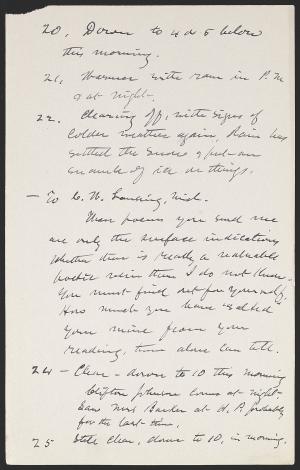 20, Down to 4 or 5 below
this morning.
21, Warmer with rain in P.M
& at night.
22, Clearing off, with signs of
colder weather again, Rain has
settled the snow & put an
enamel of ice on things.
— To C. W. Lansing, Mich.
These poems you send me
are only the surface indications
whether there is really a valuable
poetic vein there I do not know.
You must find out for yourself.
How much you have "salted"
your mine from your
reading, thou alone can tell.
24 — Clear - down to 10 this morning
Clifton Johnson comes at night-
Saw Mrs Barker at H. P. probably
for the last time.
25 Still clear, down to 10, in morning.